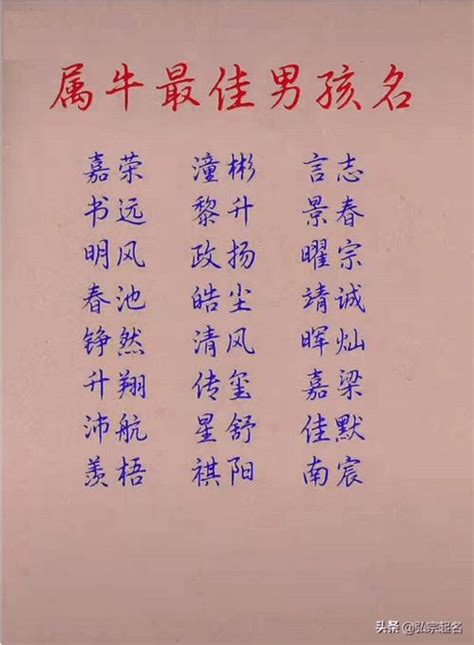 属牛最佳男孩名
嘉荣 潼彬 言志
书远 黎升 景春
明风 政扬 曜宗
春池 皓尘 靖诚
铮然 清风 晖灿
升翔 传玺 嘉梁
沛航 星舒 佳默
羡梧 祺阳 南宸
头条 @弘宗起名